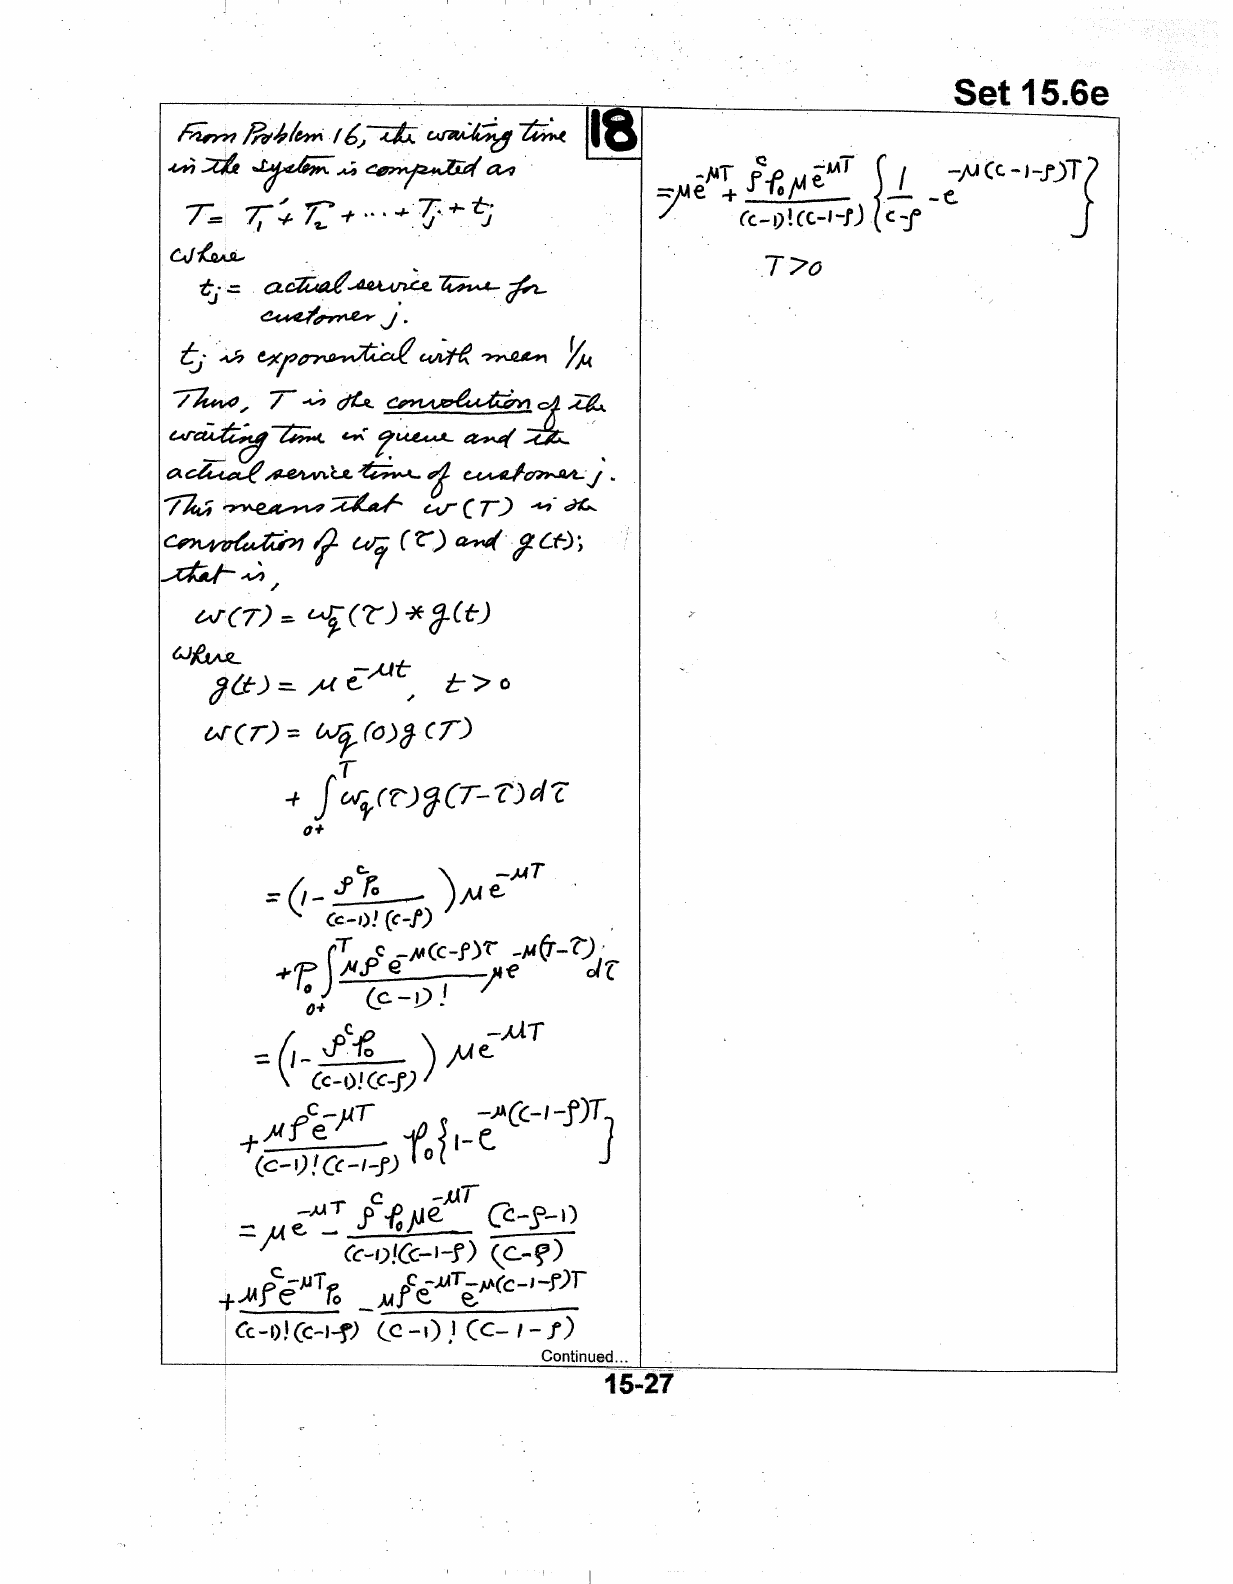 Set 15.6e
18
From Problem 16, the waiting time
in the system is computed as
T = T₁′ + T₂ + ··· + Tⱼ + tⱼ
where
tⱼ = actual service time for
customer j.
tⱼ is exponential with mean 1/μ
Thus, T is the convolution of the
waiting time in queue and the
actual service time of customer j.
This means that w(T) is the
convolution of w_q(τ) and g(t);
that is,
w(T) = w_q(τ) * g(t)
where
g(t) = μe^{-μt}, t > 0
w(T) = w_q(0)g(T)
+ ∫_{0+}^{T} w_q(τ)g(T-τ)dτ
= (1 - ρ^c p₀ / (c-1)!(c-ρ)) μe^{-μT}
+ p₀ ∫_{0+}^{T} μρ^c e^{-μ(c-ρ)τ} / (c-1)! μe^{-μ(T-τ)} dτ
= (1 - ρ^c p₀ / (c-1)!(c-ρ)) μe^{-μT}
+ μρ^c e^{-μT} / (c-1)!(c-1-ρ) p₀{1 - e^{-μ(c-1-ρ)T}}
= μe^{-μT} - ρ^c p₀ μe^{-μT} / (c-1)!(c-1-ρ) (c-ρ-1) / (c-ρ)
+ μρ^c e^{-μT} p₀ / (c-1)!(c-1-ρ) - μρ^c e^{-μT} e^{-μ(c-1-ρ)T} / (c-1)!(c-1-ρ)
Continued...
= μe^{-μT} + ρ^c p₀ μe^{-μT} / (c-1)!(c-1-ρ) {1 / c-ρ - e^{-μ(c-1-ρ)T}}
T > 0
15-27